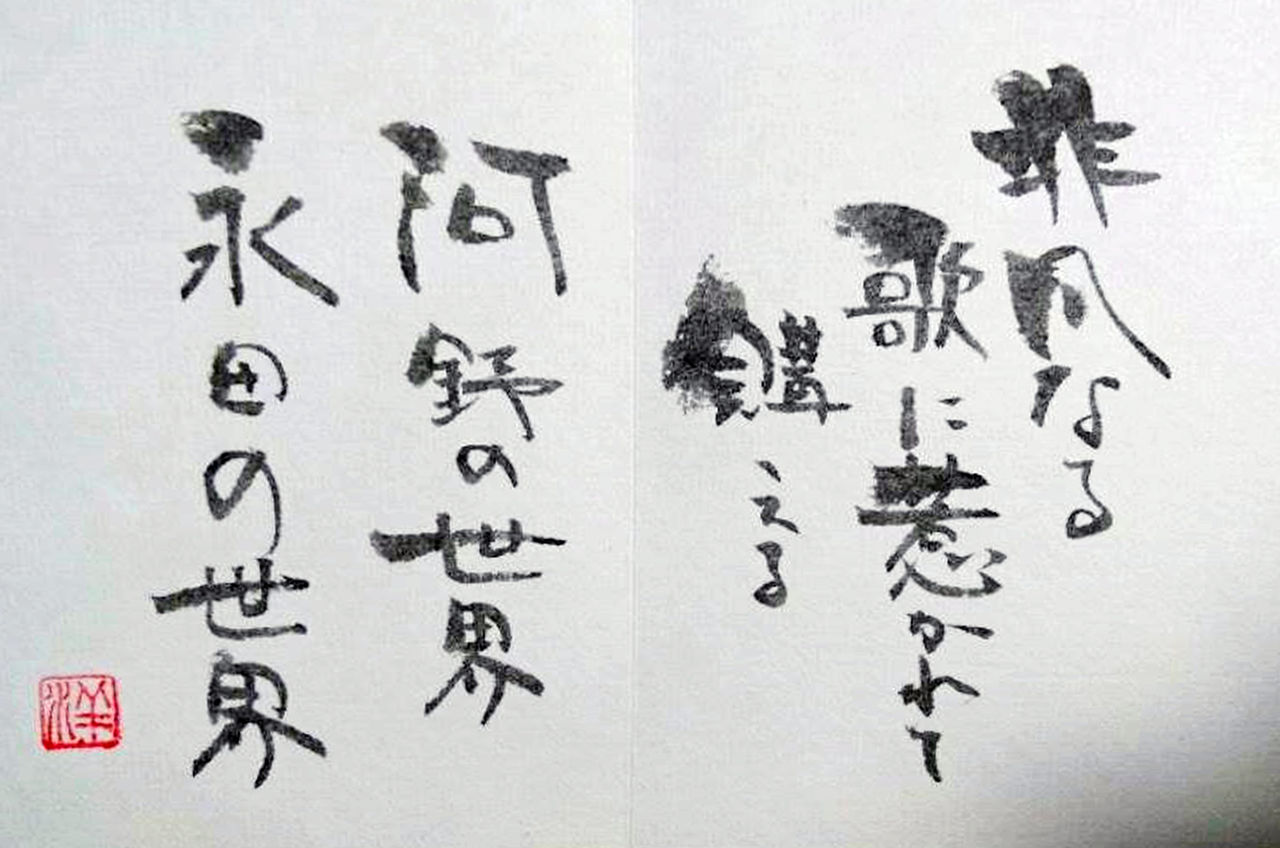 非凡なる
歌に惹かれて
える
阿野の世界
永田の世界